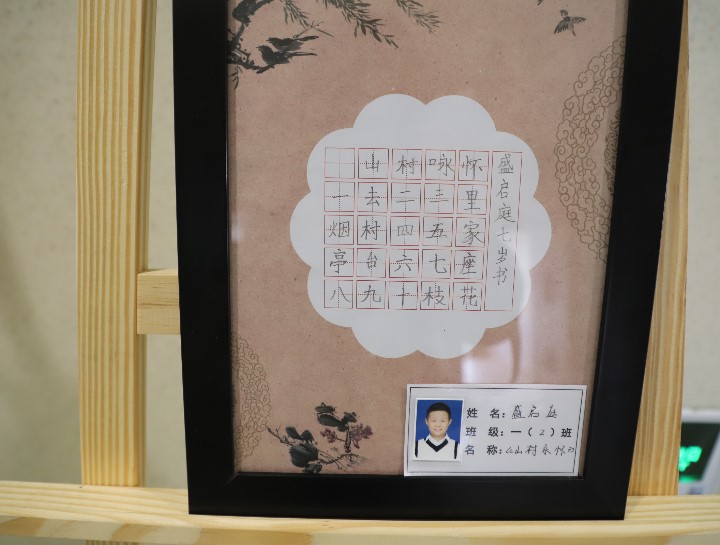 山村咏怀
一去二三里
烟村四五家
亭台六七座
八九十枝花
盛启庭七岁书
姓 名：盛启庭
班 级：一（2）班
名 称：《山村咏怀》